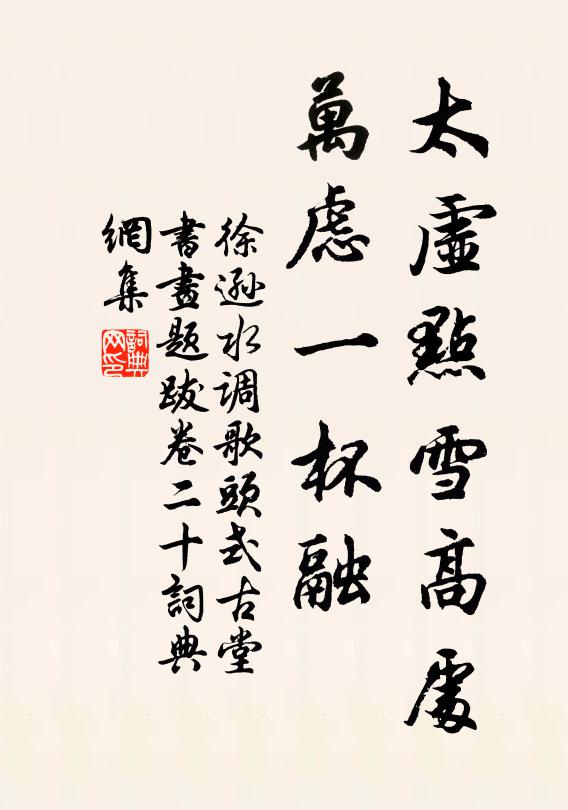 太虛點雪高處
萬慮一杯融
徐逊水调歌頭式古堂
書畫题跋卷二十詞典
網集
詞典
网印